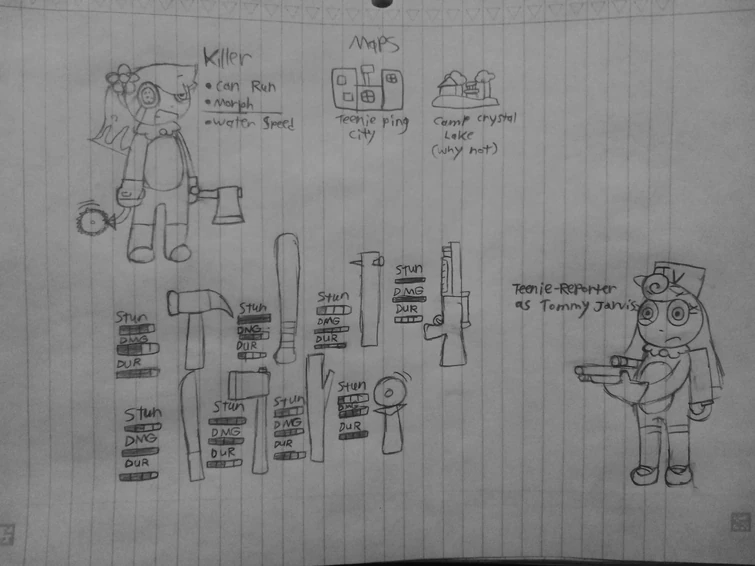 Killer
• can Run
• Morph
• water Speed
Maps
Teenie ping
city
camp crystal
Lake
(why not)
Stun
DMG
DUR
Stun
DMG
DUR
Stun
DMG
DUR
Stun
DMG
DUR
Teenie-Reporter
as Tommy Jarvis
TV
Stun
DMG
DUR
Stun
DMG
DUR
Stun
DMG
DUR
Stun
DMG
DUR